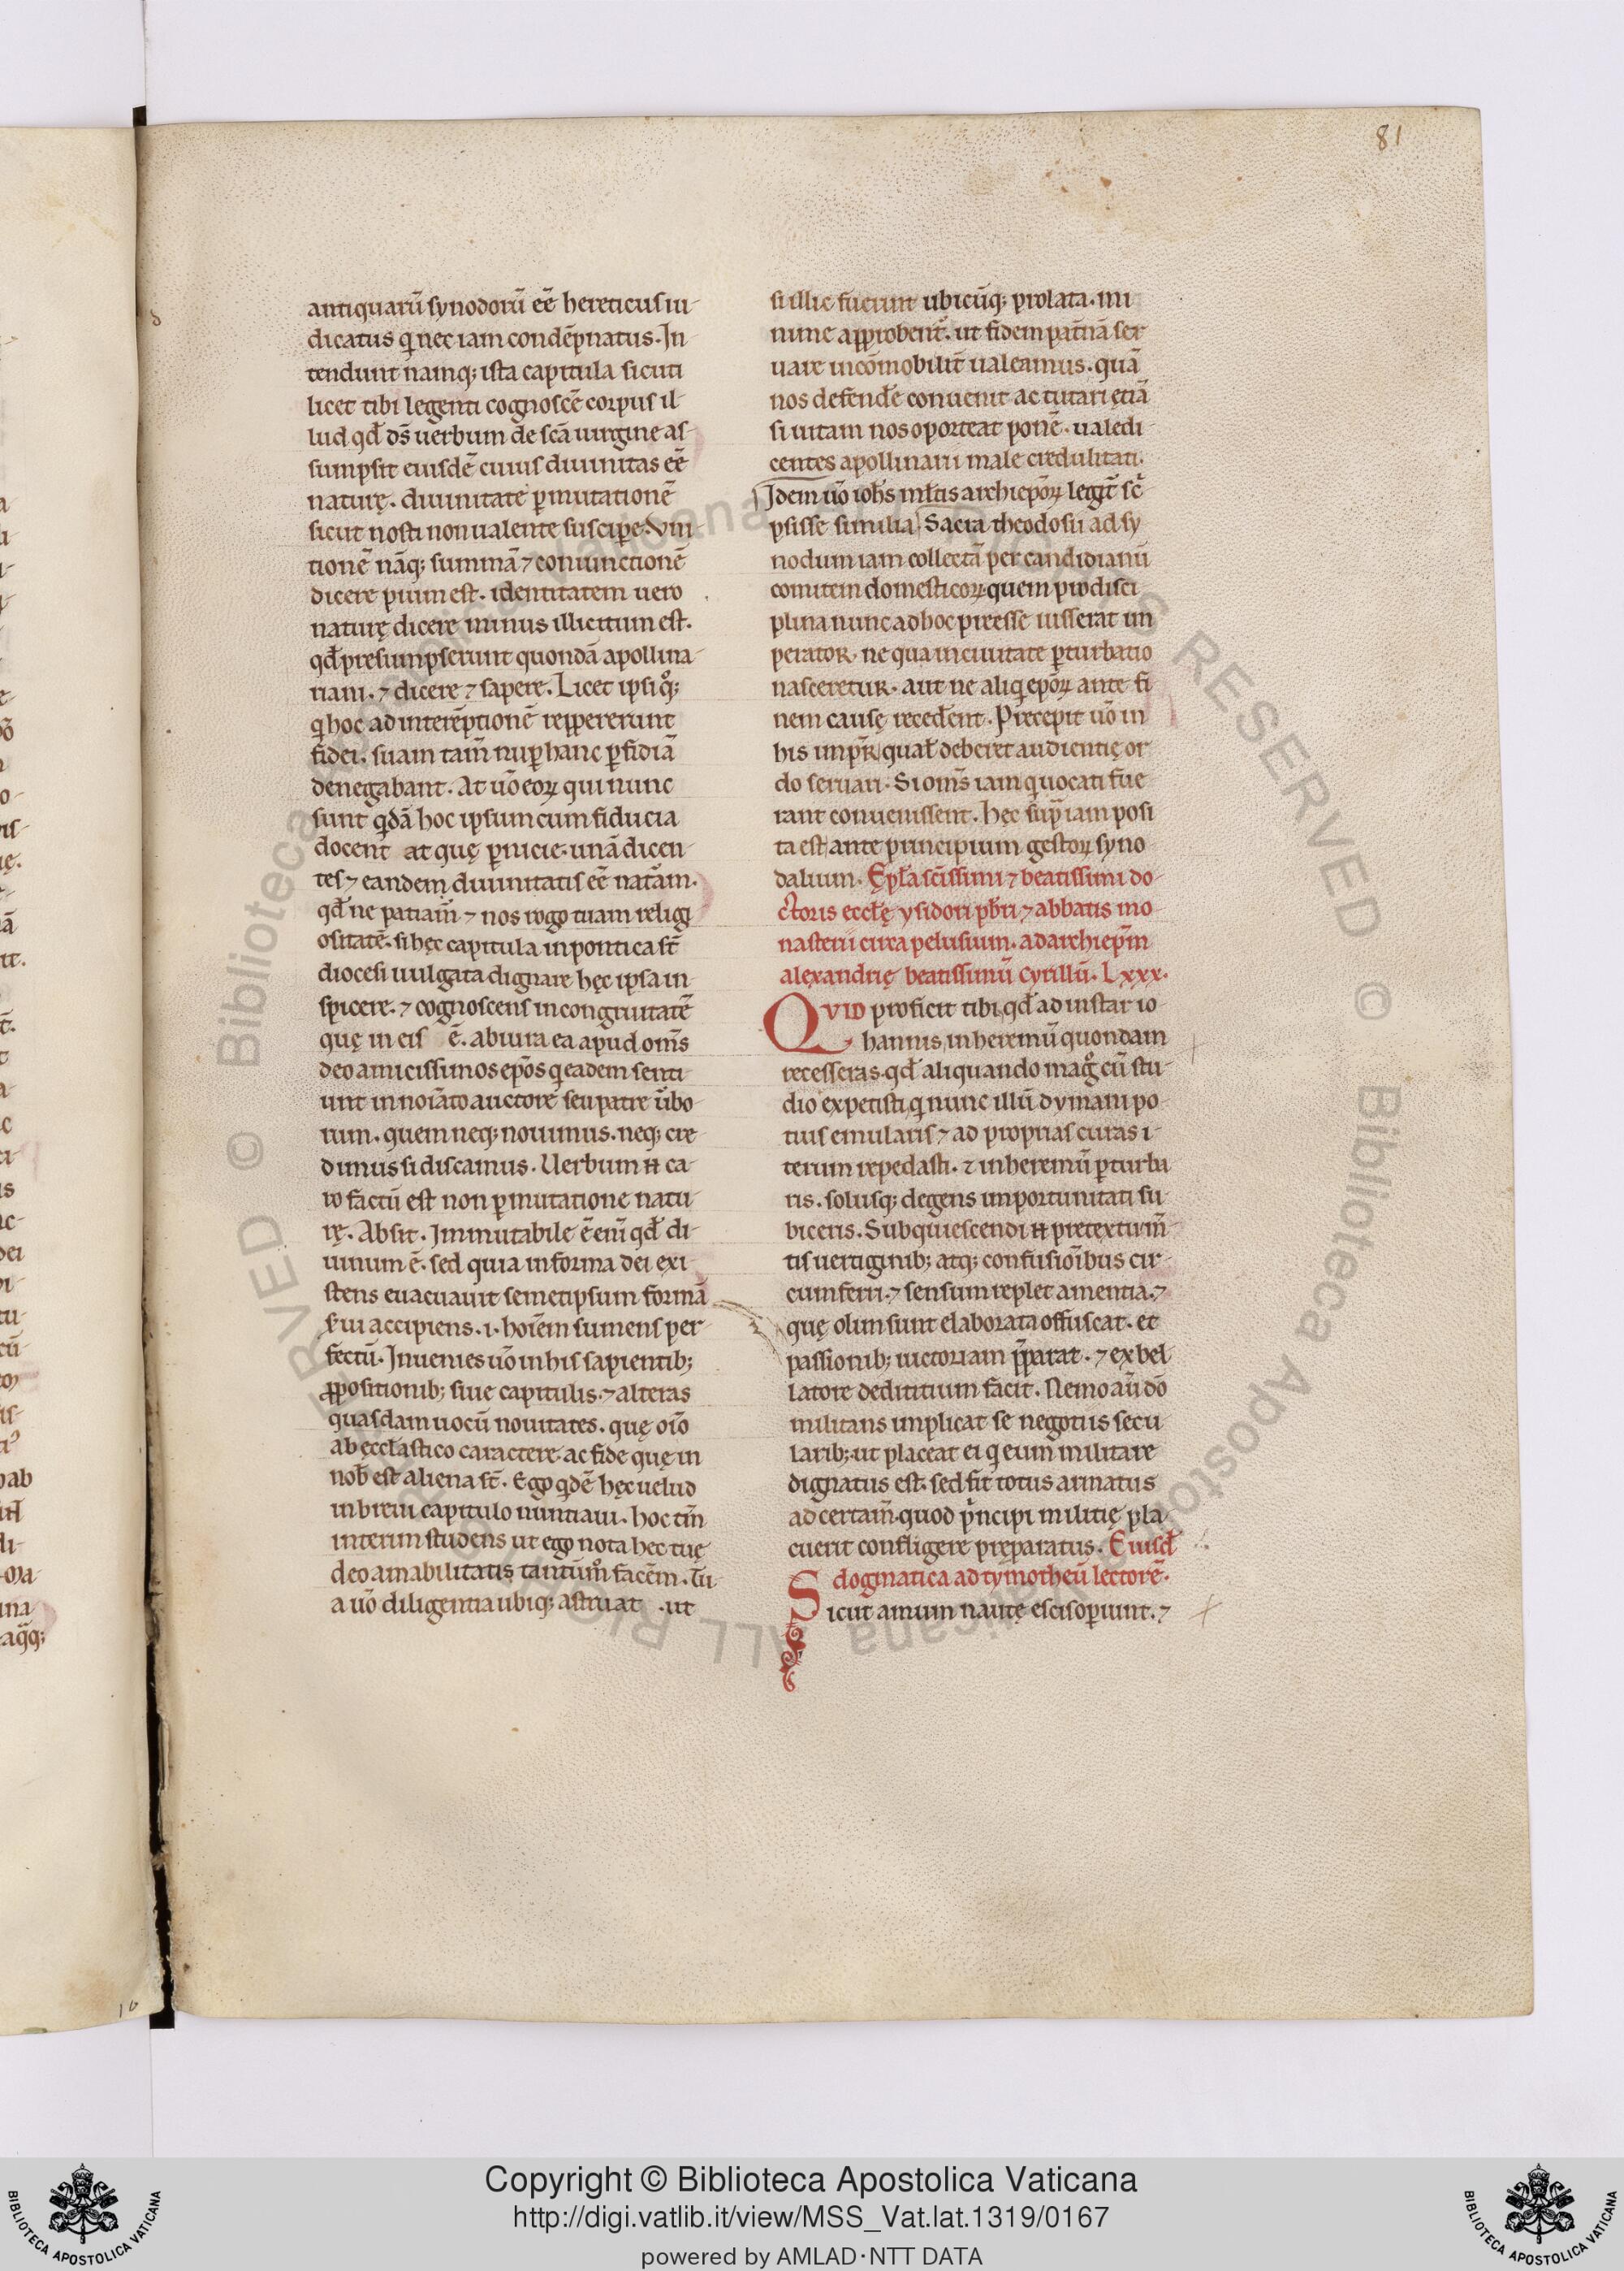 81
antiquarũ synodorũ eẽ hereticus iu-
dicatus q nec iam condẽpnatus. In-
tendunt namq; ista capitula sicuti
licet tibi legenti cognoscẽ corpus il-
lud qđ dš uerbum de scã uirgine as-
sumpsit eiusdẽ cuius diuinitas eẽ
naturę. diuinitate pmutationẽ
sicut nosti non ualente suscipe. Vni-
tionẽ nãq; summã ⁊ coniunctionẽ
dicere pium est. identitatem uero
naturę dicere nimis illicitum est.
qđ presumpserunt quondã apollina-
riani. ⁊ dicere ⁊ sapere. Licet ipsi q̊;
q hoc ad interẽptionẽ reppererunt
fidei. suam tam̃ nup hanc pfidiã
denegabant. At uõ eoꝝ qui nunc
sunt qdã hoc ipsum cum fiducia
docent at quę pnicie. unã dicen-
tes ⁊ eandem diuinitatis eẽ natãm.
qđ ne patiam̃ ⁊ nos rogo tuam religi
ositatẽ. si hęc capitula in pontica st̃
diocesi uulgata dignare hęc ipsa in-
spicere. ⁊ cognoscens incongruitatẽ
quę in eis ẽ. abiura ea apud om̃s
deo amicissimos ep̃os q eadem senti-
unt innoĩato auctore seu patre ũbo-
rum. quem neq; nouimus. neq; cre-
dimus si discamus. Uerbum ꝶ ca-
ro factũ est non pmutatione natu-
rę. Absit. Immutabile ẽ eni̅ qđ di-
uinum ẽ. sed quia in forma dei exi-
stens euacuauit semetipsum formã
s̃ui accipiens. i. hoĩem sumens per-
fectũ. Inuenies uõ in his sapientib;
ppositionib; siue capitulis. ⁊ alteras
quasdam uocũ nouitates. quę oĩo
ab ęccłastico caractere. ac fide quę in
noƀ est aliena st̃. Ego qdẽ hęc uelud
in breui capitulo nuntiaui. hoc tm̃
interim studens ut ego nota hec tuę
deo amabilitatis tantũm̊ facẽm. Tu-
a uõ diligentia ubiq; astruat .ut
si illic fuerint ubicũq; prolata. mi
nime approbent᷑. ut fidem patñã ser
uare incõmobilit̃ ualeamus. quã
nos defendẽ conuenit ac tutari ętiã
si uitam nos oporteat ponẽ. ualedi-
centes apollinarii male credulitati.
Idem uõ ioh̃s mltis archiep̃oꝝ legit᷑ sc̃
psisse similia. Sacra theodosii ad sy
nodum iam collectã per candidianũ
comitem domesticoꝝ. quem pro disci-
plina nunc ad hoc preesse iusserat im
perator. ne qua in ciuitate pturbatio
nasceretur. aut ne aliq ep̃oꝝ ante fi
nem causę receđent. Precepit uõ in
his imp̃r qual̃ deberet audientię or
do seruari. Si om̃s iam q uocati fue
rant conuenissent. hęc sup̃ iam posi
ta est ante principium gestoꝝ syno
dalium. Epl̃a scissimi ⁊ beatissimi do-
ctoris eccl̃ę ysidori pb̃ri ⁊ abbatis mo
nasterii circa pelusium. ad archiep̃m
alexandrię beatissimũ cyrillũ. Lxxx.
QVID proficit tibi qđ ad instar io-
hannis, in heremũ quondam
recesseras. qđ aliquando mag̊ cũ stu-
dio expetisti, q nunc illũ dymam po-
tius emularis ⁊ ad proprias curas i-
terum repedasti. ⁊ in heremũ pturba
ris. solusq; degens importunitati su-
biceris. Subquiescendi ꝶ pretextu m̃-
tis uertiginib; atq; confusioĩbus cir-
cumferri. ⁊ sensum replet amentia. ⁊
quę olim sunt elaborata offuscat. et
passionib; uictoriam p̃parat. ⁊ ex bel
latore dedititium facit. Nemo aũ dõ
militans implicat se negotiis secu
larib; ut placeat ei q eum militare
dignatus est. sed sit totus armatus
ad certam̃. quod p̃ncipi militię pla-
cuerit confligere preparatus. Eiusđ
dogmatica ad tymotheũ lectorẽ.
Sicut amum nautę escis opiunt. ⁊
Copyright © Biblioteca Apostolica Vaticana
http://digi.vatlib.it/view/MSS_Vat.lat.1319/0167
powered by AMLAD·NTT DATA